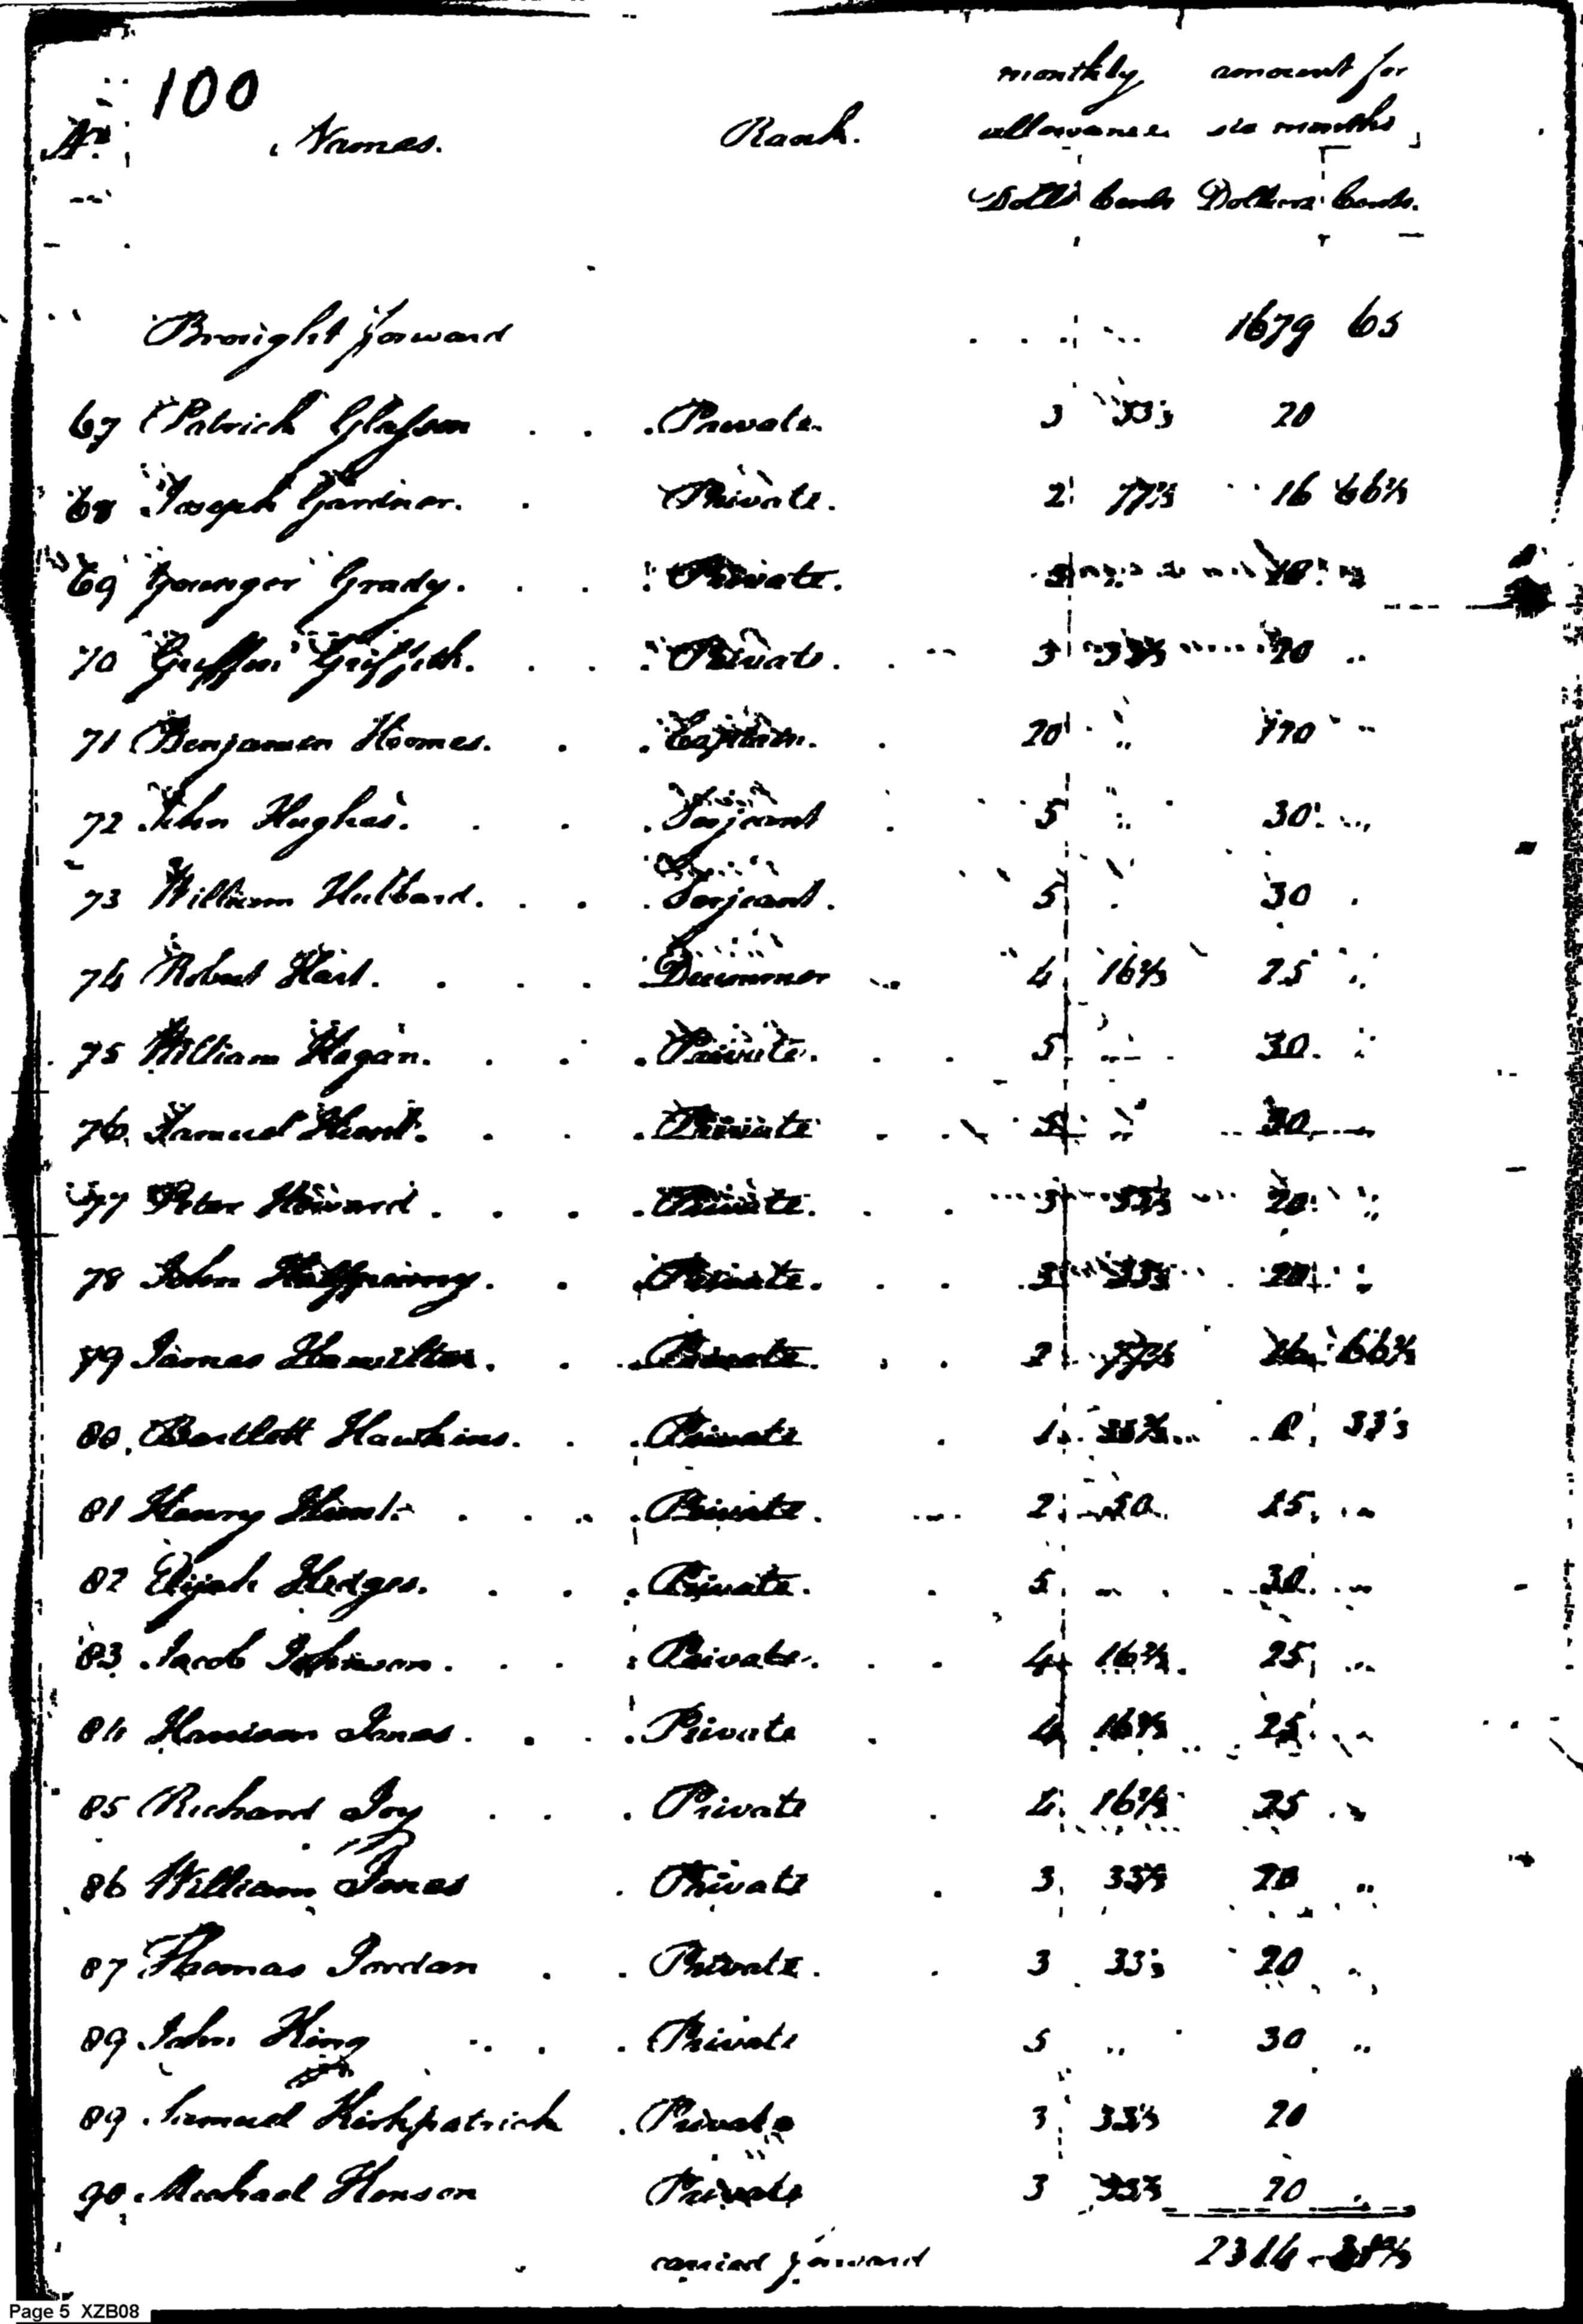 100
No. Names. Rank. monthly allowance amount for six months
Dolls Cents Dollars Cents.
Brought forward 1679 65
67 Patrick Glasson . . . Private. 3 33⅓ 20
68 Joseph Gardner. . Private. 2 77⅔ 16 66⅔
69 Younger Grady. . . . Private.
70 Griffin Griffith. . . . Private. 3 33⅓ 20 "
71 Benjamin Hoomes. . . Captain. 20 " 120 "
72 John Hughes. . . . Serjeant 5 " 30 "
73 William Hulbard. . . . Serjeant. 5 30
74 Robert Hart. . . . Drummer 4 16⅔ 25 "
75 William Hagan. . . . Private. 5 " 30 "
76 Samuel . . . Private 5 " 30
77 Peter Howard . . . . Private. 3 33⅓ 20 "
78 John Halfpenny. . . Private. 3 33⅓ 20 "
79 James Hamilton. . . Private. 2 77⅔ 16 66⅔
80 Bartlett Hawkins. . . Private 1 8 33⅓
81 Henry . . . . Private. 2 50 15 "
82 Elijah Hedges. . . . Private. 5 " 30 "
83 Jacob Johnson. . . . Private. 4 16⅔ 25 "
84 Harrison Jones. . . . Private 4 16⅔ 25 "
85 Richard Joy . . . Private 4 16⅔ 25 "
86 William Jones . Private 3 33⅓ 20 "
87 Thomas Jordan . . Private. 3 33⅓ 20 "
89 John King . . . Private 5 " 30 "
89 Samuel Kirkpatrick . Private 3 33⅓ 20
90 Michael Henson Private 3 33⅓ 20 "
carried forward 2314
Page 5 XZB08